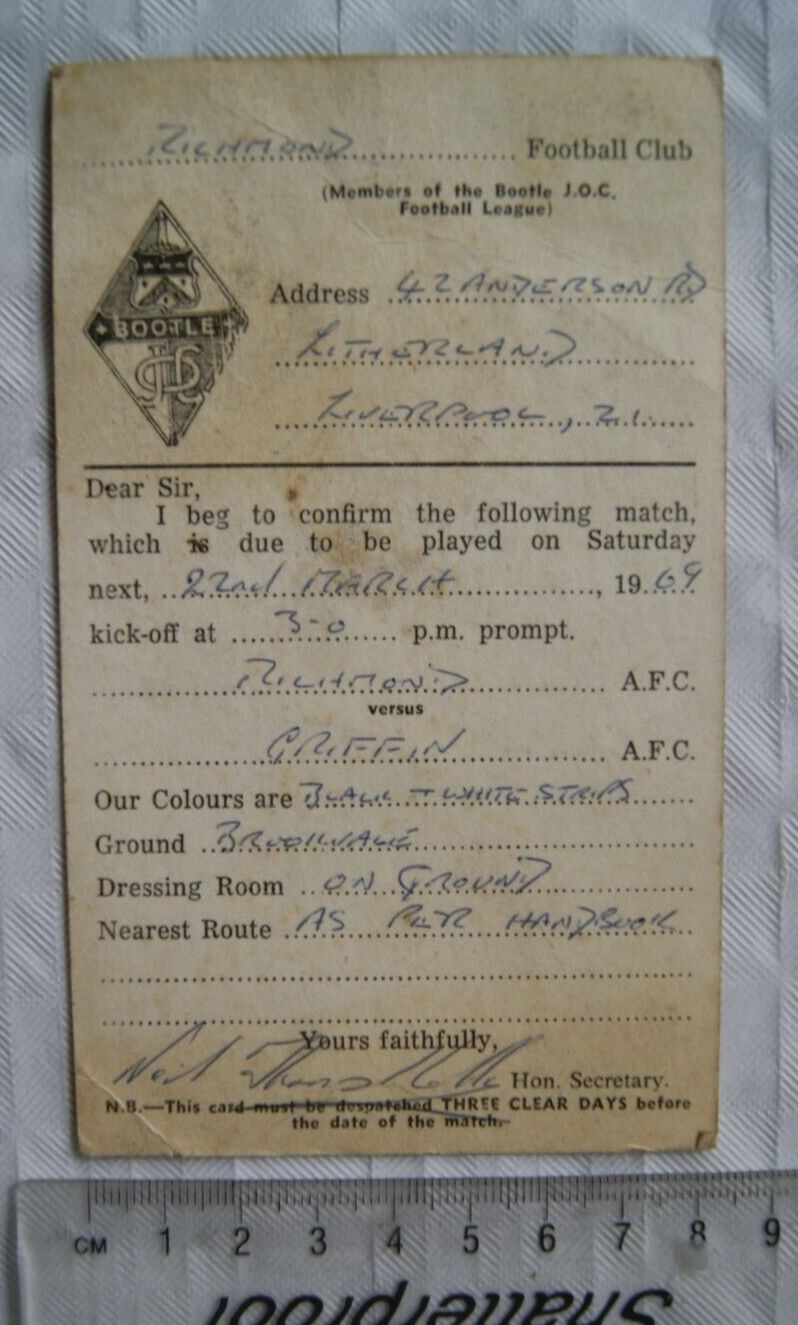 RICHMOND Football Club
(Members of the Bootle J.O.C.
Football League)
BOOTLE
Address 42 ANDERSON RD
LITHERLAND
LIVERPOOL, 21.
Dear Sir,
I beg to confirm the following match,
which is due to be played on Saturday
next, 22nd MARCH, 1969
kick-off at 3-0 p.m. prompt.
RICHMOND A.F.C.
versus
GRIFFIN A.F.C.
Our Colours are BLACK + WHITE STRIPS
Ground BROOKVALE
Dressing Room ON GROUND
Nearest Route AS PER HANDBOOK
Yours faithfully,
Neil Hon. Secretary.
N.B.—This card must be despatched THREE CLEAR DAYS before
the date of the match.
CM 1 2 3 4 5 6 7 8 9
Shatterproof